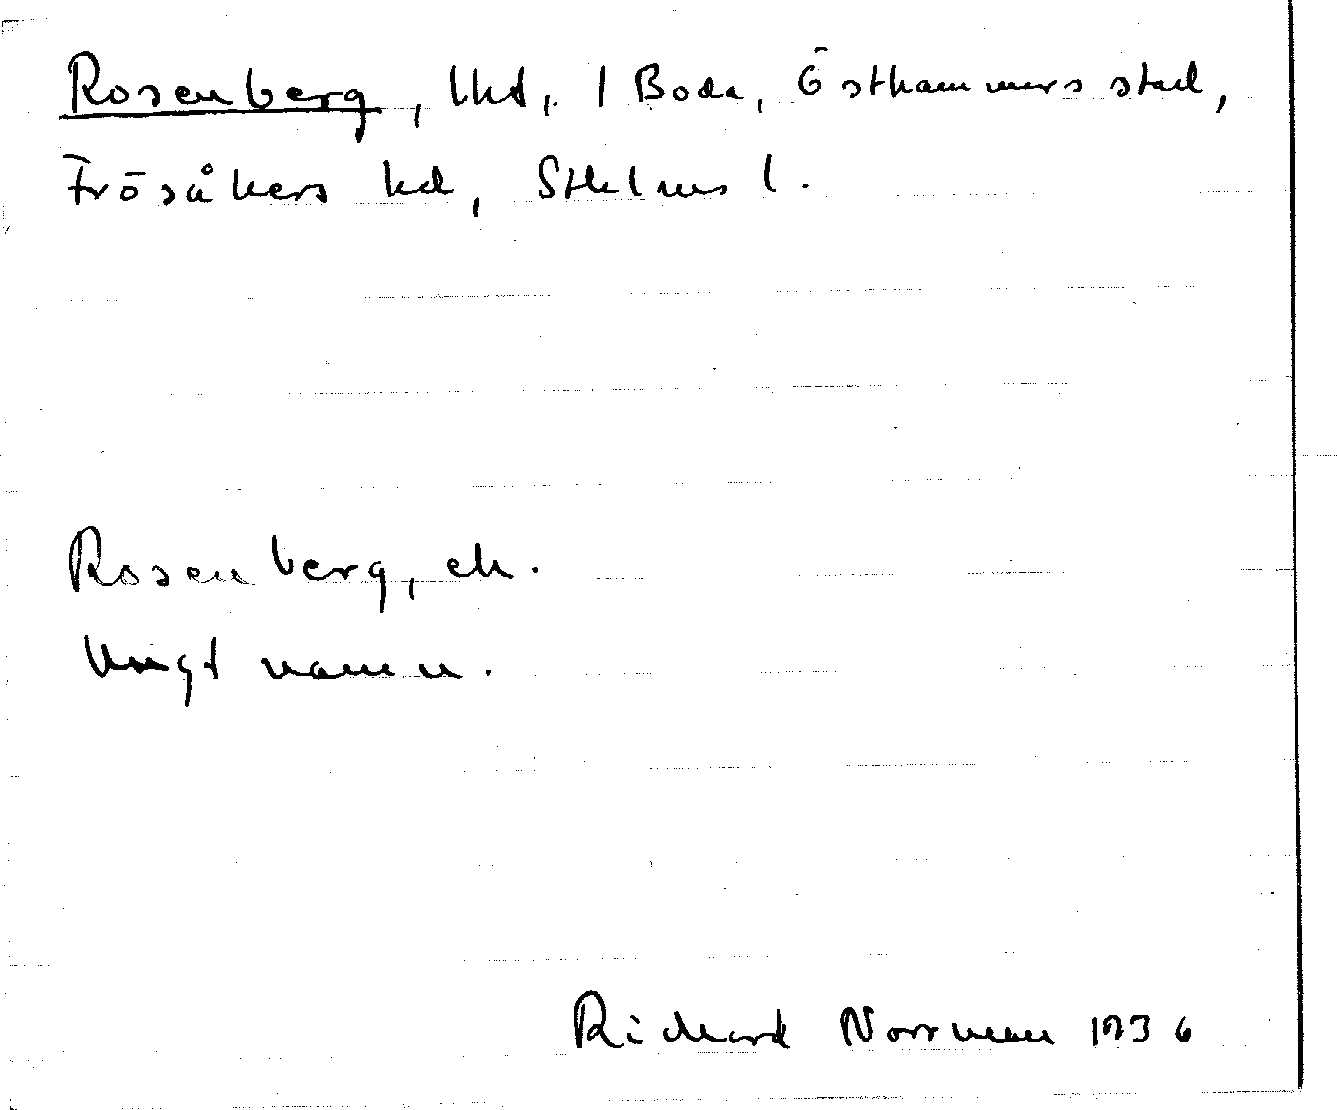 Rosenberg, lhd, 1 Boda, Östhammars stad,
Frösåkers hd, Sthlms l.
Rosenberg, eh.
Ungt namn.
Richard Norrman 1936